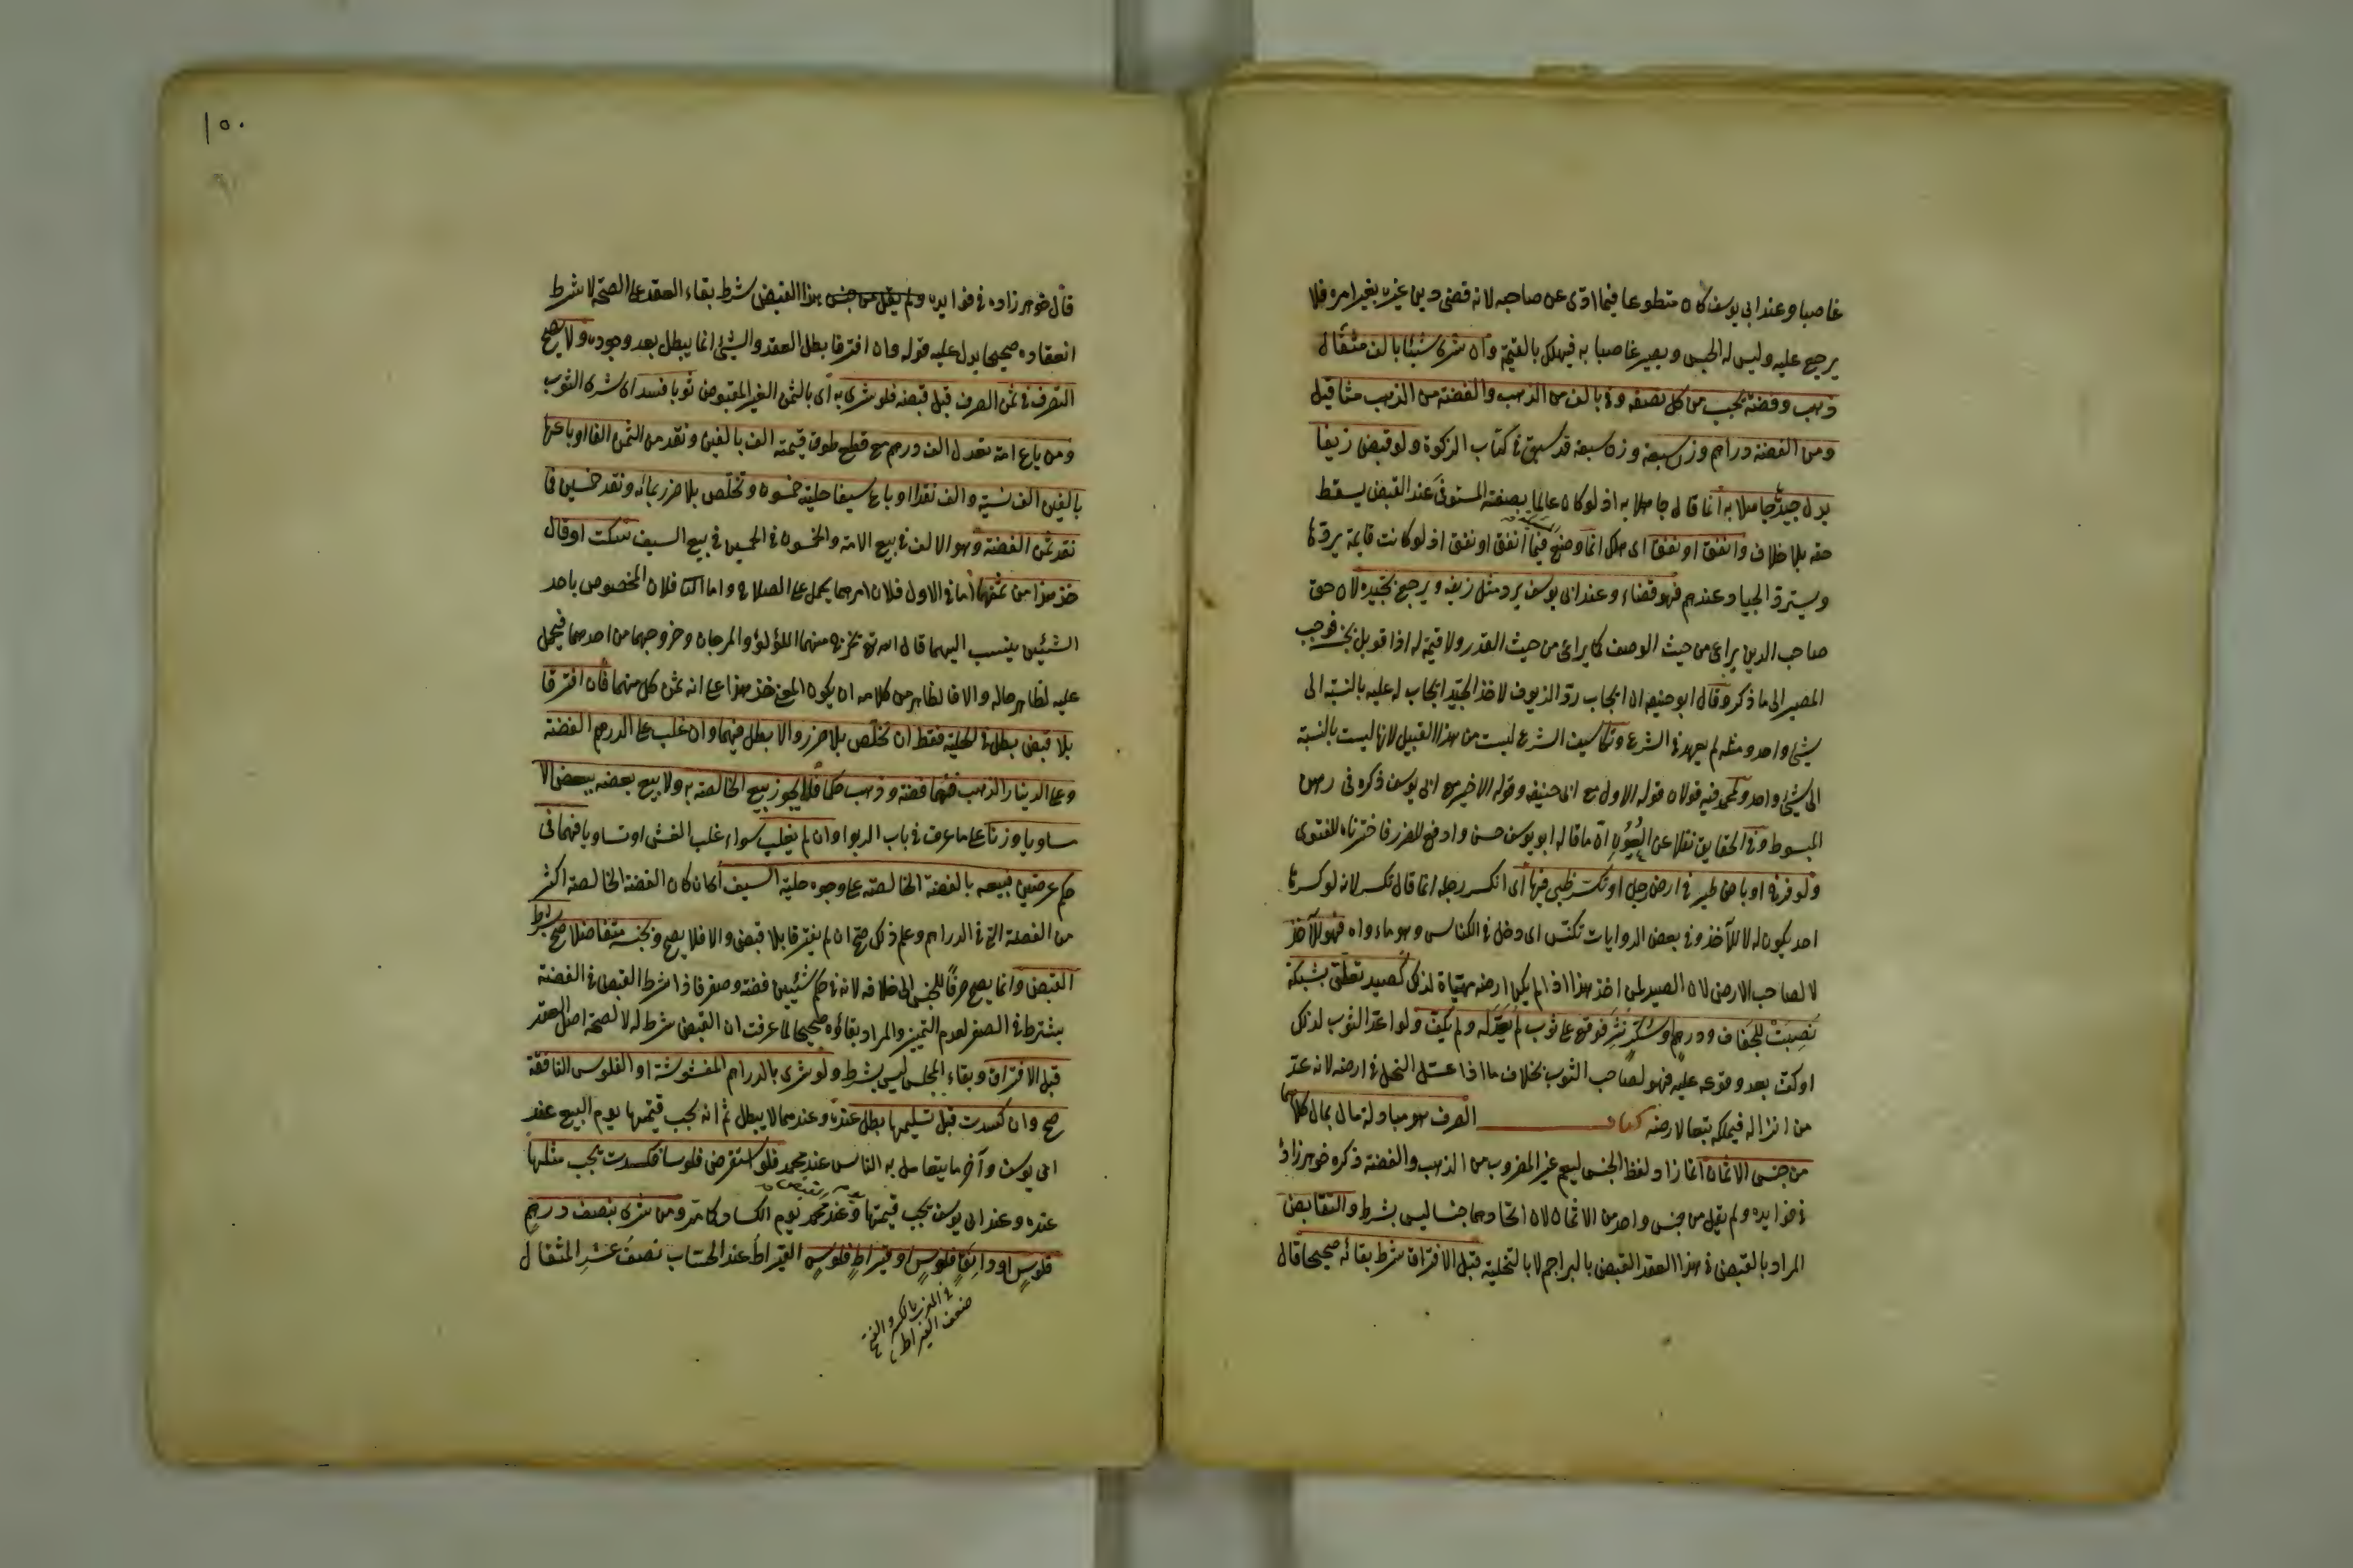 غاصبا وعند ابي يوسف كان متطوعا فيما ادّى عن صاحبه لانه قضى دين غيره بغير امره فلا
يرجع عليه وليس له الحبس ويصير غاصبا به فيهلك بالقيمة وان شرى شيئا بالف مثقال
ذهب وفضة يجب من كل نصفه وفي بالف من الذهب والفضة من الذهب مثاقيل
ومن الفضة دراهم وزن سبعة وزن سبعة قد سبق في كتاب الزكوة ولو قبض زيفا
بدل جيد جاهلا به انما قال جاهلا به اذ لو كان عالما بصفة المستوفى عند القبض يسقط
حقه بلا خلاف وانفق او نفق اى هلك انما وضع فيما انفق او نفق اذ لو كانت قايمة يردها
ويسترد الجياد عندهم فهو قضاء وعند ابى يوسف يرد مثل زيفه ويرجع بجيده لان حق
صاحب الدين يراعى من حيث الوصف كما يراعى من حيث القدر ولا قيمة له اذا قوبل بجنسه فوجب
المصير الى ما ذكر وقال ابو حنيفه ان ايجاب رد الزيوف لاخذ الجيد ايجاب له عليه بالنسبة الى
شئ واحد ومثله لم يعهد في الشرع وتكاليف الشرع ليست من هذا القبيل لانها ليست بالنسبة
الى شئ واحد ولمحمد فيه قولان قوله الاول مع ابى حنيفه وقوله الاخير مع ابى يوسف ذكره فى رهن
المبسوط وفي الحقايق نقلا عن العيون ان ما قاله ابو يوسف حسن وادفع للضرر فاخترناه للفتوى
ولو فرخ او باض طير في ارض رجل او تكسر ظبى فيها اى انكسر رجله انما قال تكسر لانه لو كسرها
احد يكون له لا للآخذ وفي بعض الروايات تكنس اى دخل فى الكناس وهو ماواه فهو للآخذ
لا لصاحب الارض لان الصيد لمن اخذ هذا اذا لم يكن ارضه مهياة لذلك كصيد تعلق بشبكة
نصبت للجفاف ودرهم وسكر نثر فوقع على ثوب لم يعد له ولم يكف ولو اعد الثوب لذلك
او كف بعد وقوعه عليه فهو لصاحب الثوب بخلاف ما اذا عسل النحل في ارضه لانه عد
من انزاله فيملكه تبعا لارضه كتاب الصرف هو مبادلة مال بمال كلاهما
من جنس الاثمان انما زاد لفظ الجنس ليعم غير المضروب من الذهب والفضة ذكره خوهر زاده
في فوايده ولم يقل من جنس واحد من الاثمان لان اتحادهما جنسا ليس بشرط والتقابض
المراد بالقبض في هذا العقد القبض بالبراجم لا بالتخلية قبل الافتراق شرط بقائه صحيحا قال
١٥٠
قال خوهر زاده في فوايده ولم يقل من جنس هذا القبض شرط بقاء العقد على الصحة لا شرط
انعقاده صحيحا يدل عليه قوله وان افترقا بطل العقد والشئ انما يبطل بعد وجوده ولا يصح
التصرف في ثمن الصرف قبل قبضه فلو شرى به اى بالثمن الغير المقبوض ثوبا فسد اى شرى الثوب
ومن باع امة تعدل الف درهم مع طوق قيمته الف بالفين ونقد من الثمن الفا او باعها
بالفين الف نسية والف نقد او باع سيفا حليته خمسون وتخلص بلا ضرر بمائه ونقد خمسين فما
نقد ثمن الفضة وهو الالف في بيع الامة والخمسون في الخمسين في بيع السيف سكت او قال
خذ هذا من ثمنهما اما في الاول فلان امرهما يحمل على الصلاح واما الثا فلان المخصوص باحد
الشيئين ينسب اليهما قال الله تع يخرج منهما اللؤلؤ والمرجان وخروجهما من احدهما فيحمل
عليه لظاهر حاله والا فالظاهر من كلامه ان يكون المعنى خذ هذا على انه ثمن كل منهما فان افترقا
بلا قبض بطل في الحلية فقط ان تخلص بلا ضرر والا بطل فيهما وان غلب على الدرهم الفضة
وعلى الدينار الذهب فهما فضة وذهب حكما فلا يجوز بيع الخالصة به ولا بيع بعضه ببعض الا
متساويا وزنا على ما عرف في باب الربوا وان لم يغلب سواء غلب الغش او تساويا فهما فى
حكم عرضين فبيعه بالفضة الخالصة على وجوه حلية السيف اى ان كان الفضة الخالصة اكثر
من الفضة التي في الدراهم وعلم ذلك صح ان لم يفترقا بلا قبض والا فلا يصح وبجنسه متفاضلا صح بشرط
القبض وانما يصح صرفا للجنس الى خلافه لانه في حكم شيئين فضة وصفر فاذا شرط القبض في الفضة
يشترط في الصفر لعدم التمييز والمراد بقاؤه صحيحا لما عرفت ان القبض شرط له لا لصحة اصل العقد
قبل الافتراق وبقاء المجلس ليس بشرط ولو شرى بالدراهم المغشوشة او الفلوس النافقة
صح وان كسدت قبل تسليمها بطل عنده وعندهما لا يبطل ثم انه يجب قيمتها يوم البيع عند
ابى يوسف وآخر ما يتعامل به الناس عند محمد فلو استقرض فلوسا فكسدت يجب مثلها
عنده وعند ابى يوسف يجب قيمتها يوم القبض وعند محمد يوم الكساد كما مر ومن شرى بنصف درهم
فلوس او دانق فلوس او قيراط فلوس القيراط عند الحساب نصف عشر المثقال
في المغرب بالكسر والفتح
ضعف القيراط